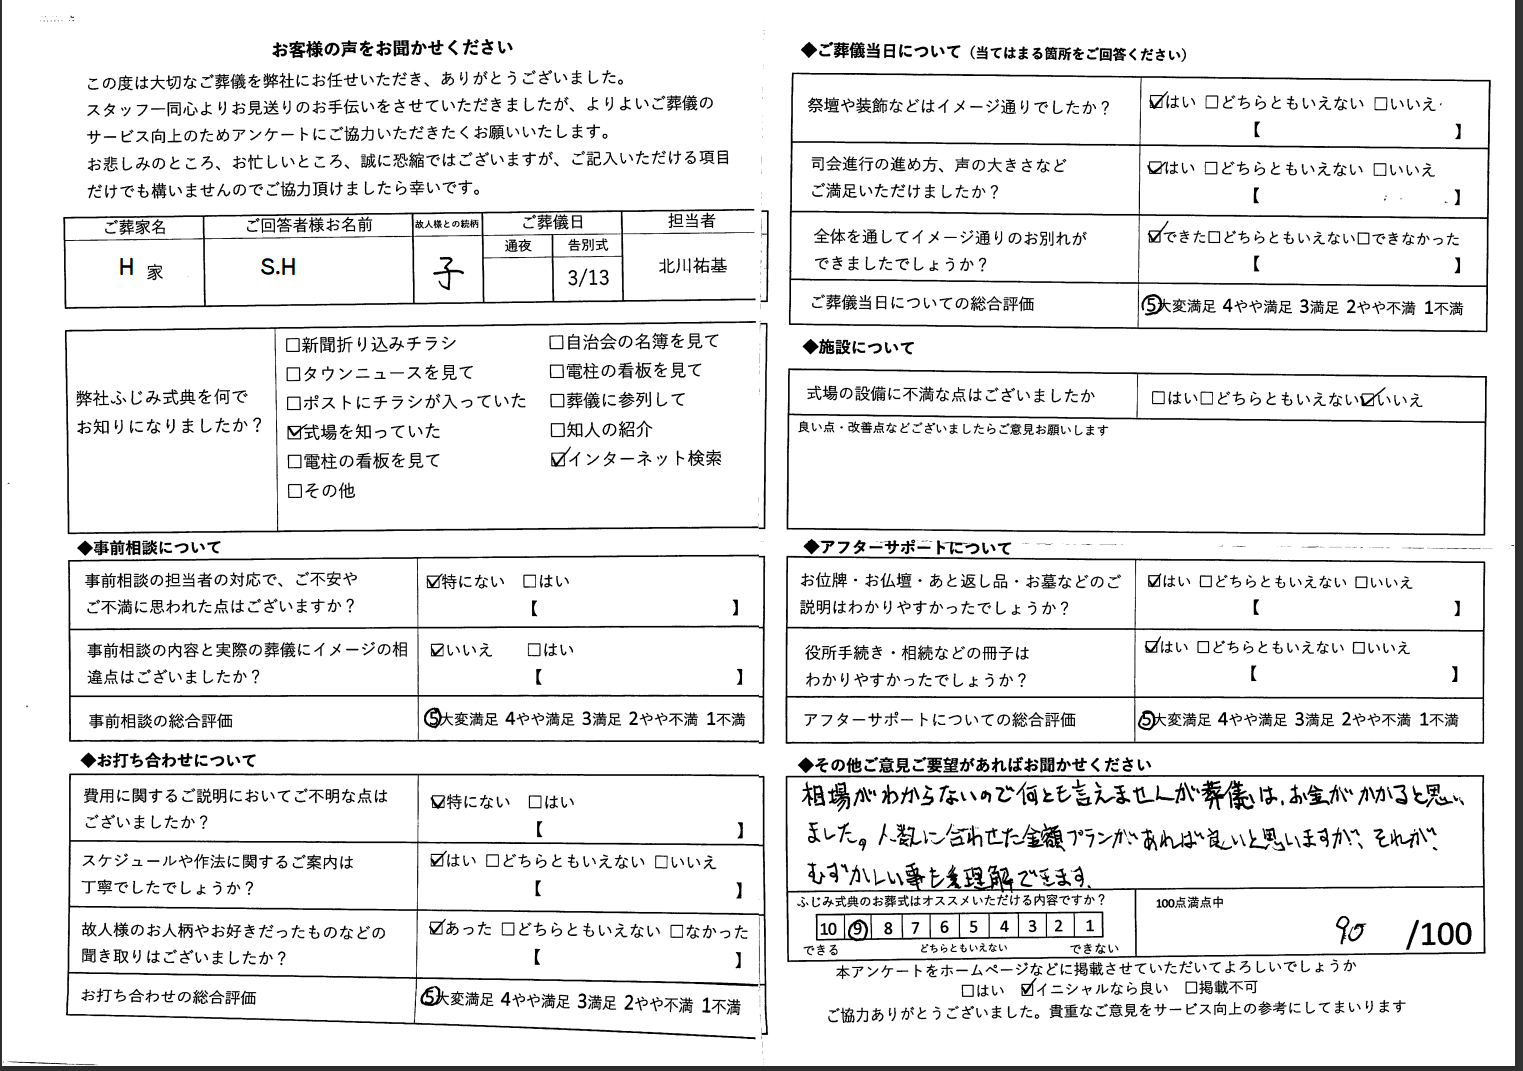 お客様の声をお聞かせください
この度は大切なご葬儀を弊社にお任せいただき、ありがとうございました。
スタッフ一同心よりお見送りのお手伝いをさせていただきましたが、よりよいご葬儀の
サービス向上のためアンケートにご協力いただきたくお願いいたします。
お悲しみのところ、お忙しいところ、誠に恐縮ではございますが、ご記入いただける項目
だけでも構いませんのでご協力頂けましたら幸いです。
ご葬家名 ご回答者様お名前 故人様との続柄 ご葬儀日 担当者
通夜 告別式
H 家 S.H 子 3/13 北川祐基
弊社ふじみ式典を何で
お知りになりましたか？
□新聞折り込みチラシ □自治会の名簿を見て
□タウンニュースを見て □電柱の看板を見て
□ポストにチラシが入っていた □葬儀に参列して
☑式場を知っていた □知人の紹介
□電柱の看板を見て ☑インターネット検索
□その他
◆事前相談について
事前相談の担当者の対応で、ご不安や ☑特にない □はい
ご不満に思われた点はございますか？ 【 】
事前相談の内容と実際の葬儀にイメージの相 ☑いいえ □はい
違点はございましたか？ 【 】
事前相談の総合評価 ⑤大変満足 4やや満足 3満足 2やや不満 1不満
◆お打ち合わせについて
費用に関するご説明においてご不明な点は ☑特にない □はい
ございましたか？ 【 】
スケジュールや作法に関するご案内は ☑はい □どちらともいえない □いいえ
丁寧でしたでしょうか？ 【 】
故人様のお人柄やお好きだったものなどの ☑あった □どちらともいえない □なかった
聞き取りはございましたか？ 【 】
お打ち合わせの総合評価 ⑤大変満足 4やや満足 3満足 2やや不満 1不満
◆ご葬儀当日について（当てはまる箇所をご回答ください）
祭壇や装飾などはイメージ通りでしたか？ ☑はい □どちらともいえない □いいえ
【 】
司会進行の進め方、声の大きさなど ☑はい □どちらともいえない □いいえ
ご満足いただけましたか？ 【 】
全体を通してイメージ通りのお別れが ☑できた□どちらともいえない□できなかった
できましたでしょうか？ 【 】
ご葬儀当日についての総合評価 ⑤大変満足 4やや満足 3満足 2やや不満 1不満
◆施設について
式場の設備に不満な点はございましたか □はい□どちらともいえない☑いいえ
良い点・改善点などございましたらご意見お願いします
◆アフターサポートについて
お位牌・お仏壇・あと返し品・お墓などのご ☑はい □どちらともいえない □いいえ
説明はわかりやすかったでしょうか？ 【 】
役所手続き・相続などの冊子は ☑はい □どちらともいえない □いいえ
わかりやすかったでしょうか？ 【 】
アフターサポートについての総合評価 ⑤大変満足 4やや満足 3満足 2やや不満 1不満
◆その他ご意見ご要望があればお聞かせください
相場がわからないので何とも言えませんが葬儀は、お金がかかると思い
ました。人数に合わせた金額プランがあれば良いと思いますが、それが、
むずかしい事も理解できます。
ふじみ式典のお葬式はオススメいただける内容ですか？ 100点満点中
10 ⑨ 8 7 6 5 4 3 2 1 90 /100
できる どちらともいえない できない
本アンケートをホームページなどに掲載させていただいてよろしいでしょうか
□はい ☑イニシャルなら良い □掲載不可
ご協力ありがとうございました。貴重なご意見をサービス向上の参考にしてまいります